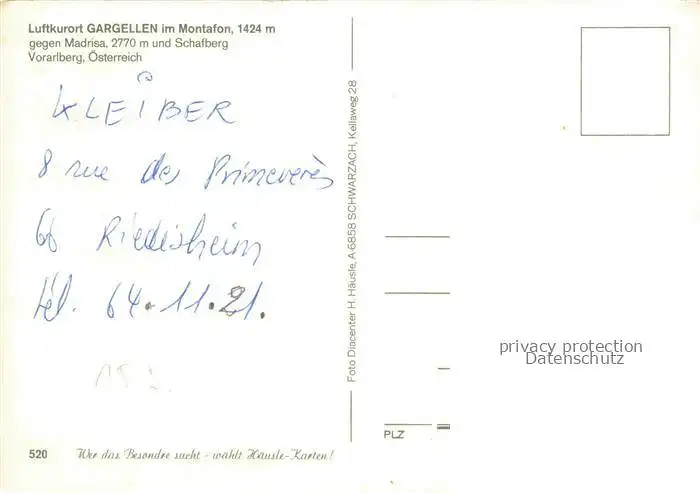 Luftkurort GARGELLEN im Montafon, 1424 m
gegen Madrisa, 2770 m und Schafberg
Vorarlberg, Österreich
KLEIBER
8 rue des Primevères
68 Riedisheim
tél. 64.11.21.
520 Wer das Besondre sucht - wählt Häusle-Karten!
Foto Diacenter H. Häusle, A-6858 SCHWARZACH, Kellaweg 28
privacy protection
Datenschutz
PLZ